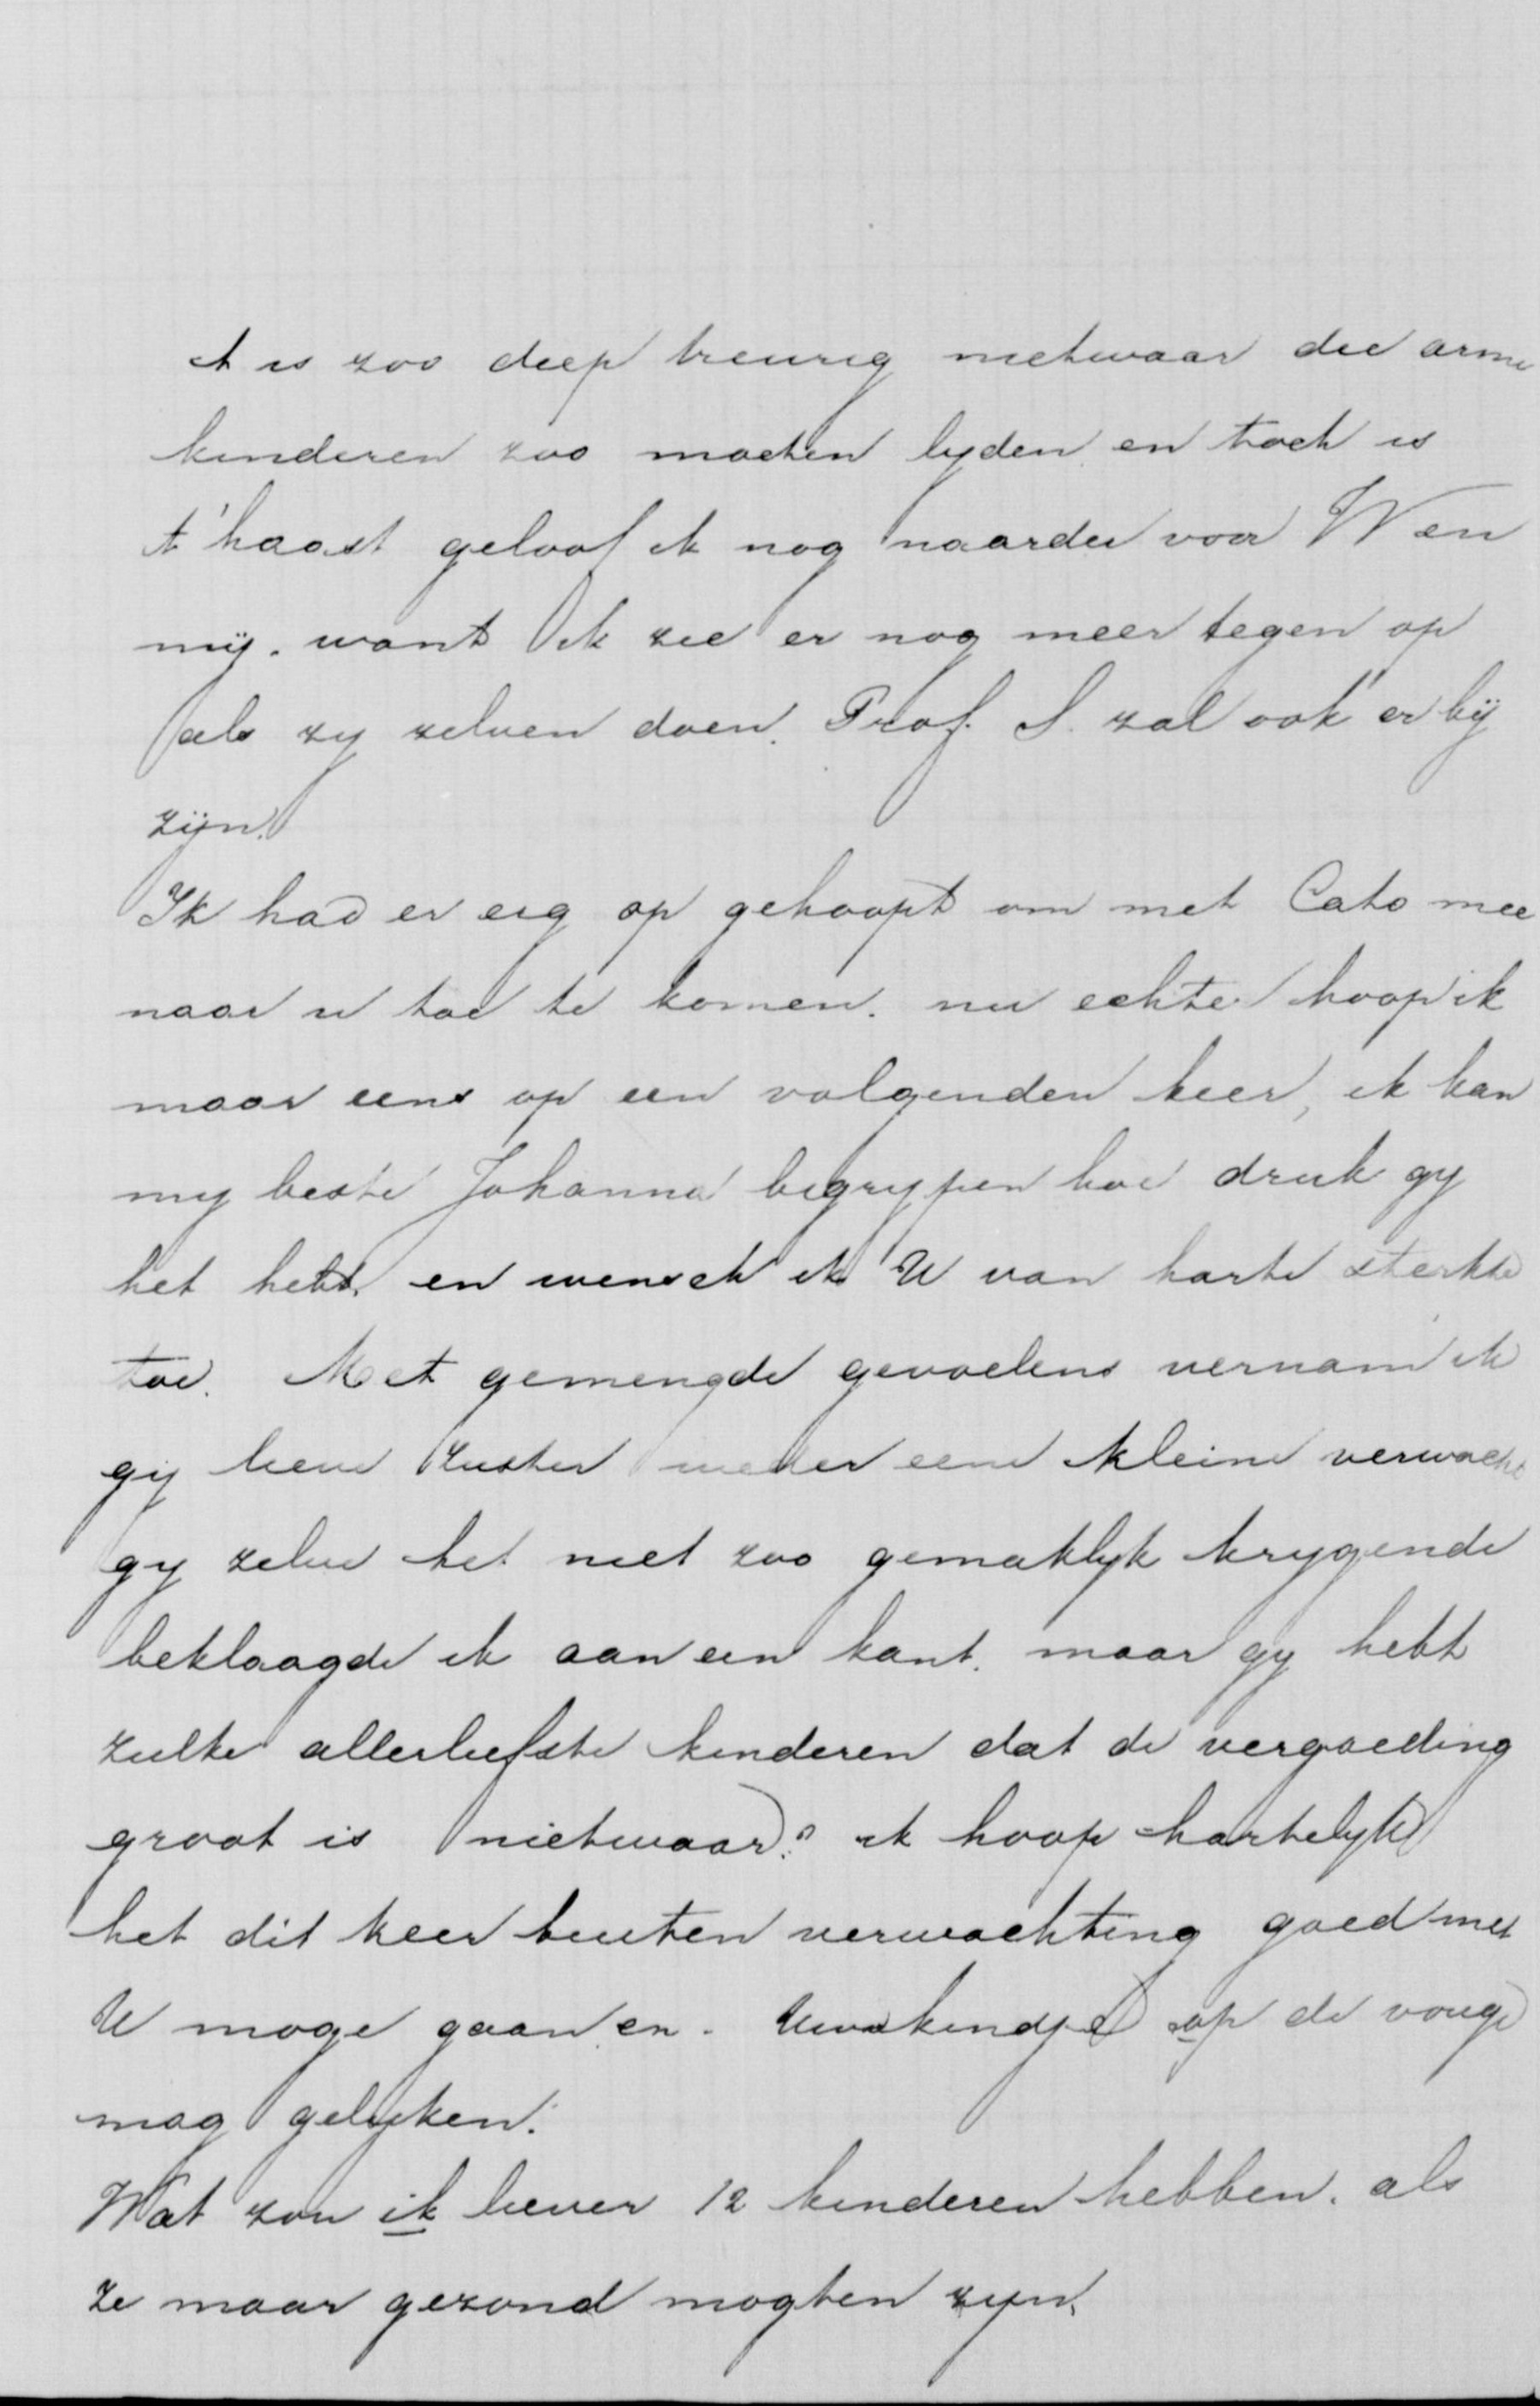 t is zoo diep treurig nietwaar die arme
kinderen zoo moeten lyden en toch is
t' haast geloof ik nog naarder voor W en
mij. want ik zie er nog meer tegen op
als zy zelven doen. Prof. S. zal ook er bij
zijn.
Ik had er erg op gehoopt om met Cato mee
naar u toe te komen. nu echter hoop ik
maar eens op een volgenden keer, ik kan
my beste Johanna begrypen hoe druk gy
het hebt, en wensch ik U van harte sterkte
toe. Met gemengde gevoelens vernam ik
gij lieve zuster weder eene kleine verwacht
gy zelve het niet zoo gemaklyk krygende
beklaagde ik aan een kant. maar gy hebt
zulke allerliefste kinderen dat de vergoeding
groot is nietwaar? ik hoop hartelyk
het dit keer buiten verwachting goed met
U moge gaan en. Uwe kindje op de vorige
mag gelyken.
Wat zou ik liever 12 kinderen hebben. als
ze maar gezond mogten zyn.